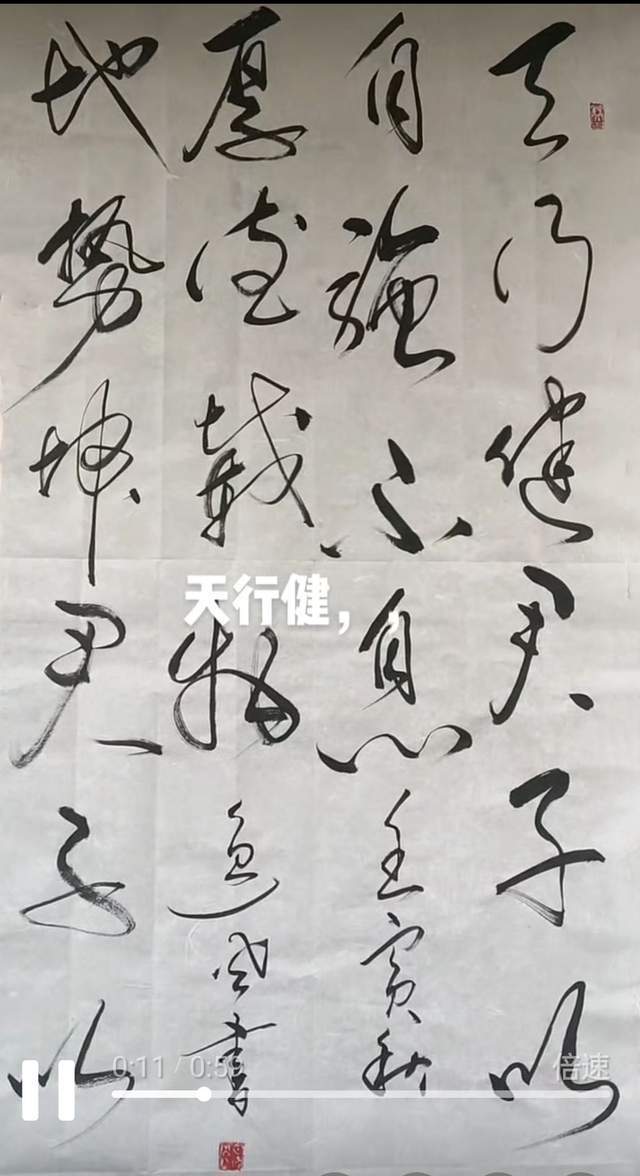 天行健君子以
自强不息
壬寅秋
地势坤君子以
厚德载物
天行健，
0:11 / 0:59
倍速